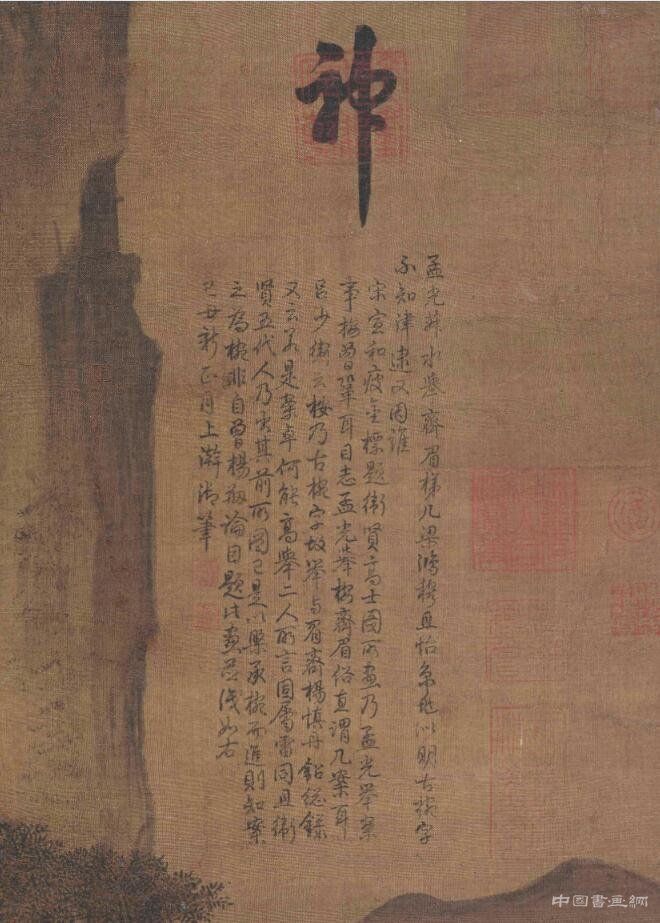 神
孟光水齊眉梯几梁鴻穆且怡明古椀字
不知津逮又因誰
宋宣和瘦金標題衛賢高士圖所畫乃孟光舉案
事按曾鞏耳目志孟光舉桉齊眉俗直謂几案耳
呂少衛云桉乃古椀字故舉与眉齊楊慎丹鉛總錄
又云若是案卓何能高舉二人所言固屬雷同且衛
賢五代人乃其前所圖已是以槃承椀而進則知案
之為椀非自曾楊論因題此畫并識如右
己丑新正月上澣御筆
中国書画網